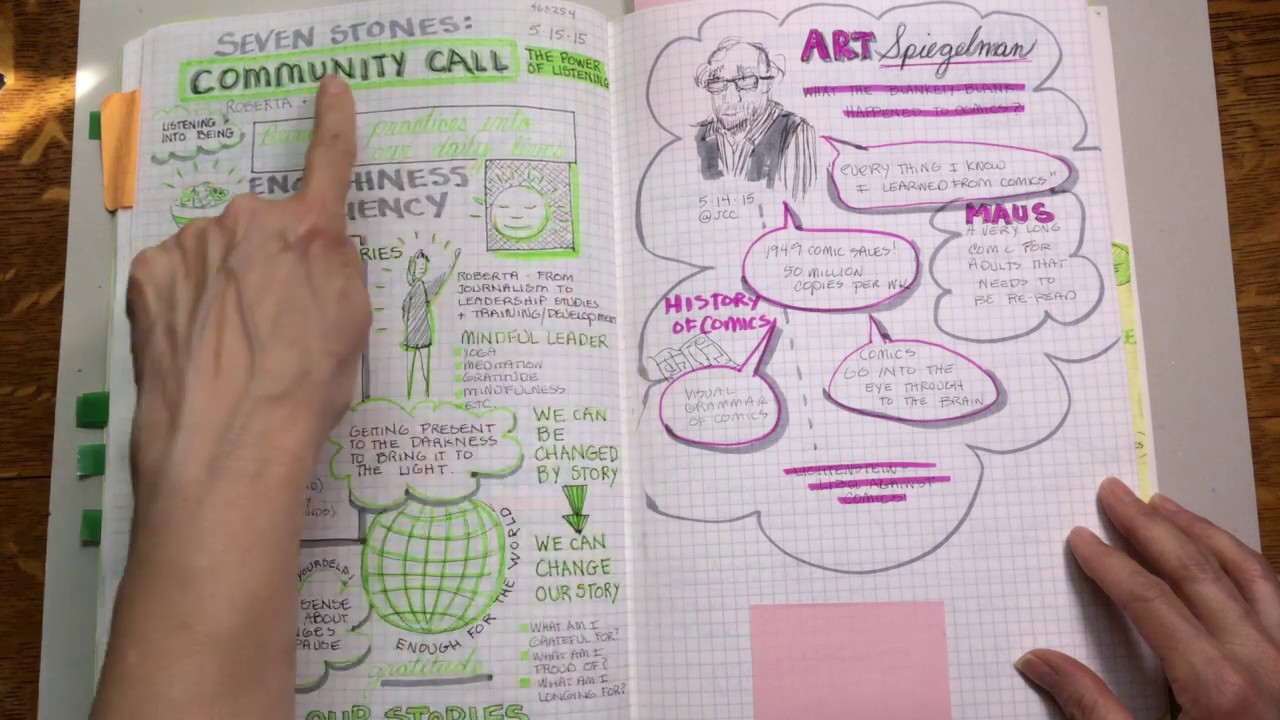 SEVEN STONES:
COMMUNITY CALL
5·15·15
THE POWER
OF LISTENING
ROBERTA +
LISTENING
INTO BEING
practices into
our daily lives
ROBERTA - FROM
JOURNALISM TO
LEADERSHIP STUDIES
+ TRAINING/DEVELOPMENT
MINDFUL LEADER
YOGA
MEDITATION
GRATITUDE
MINDFULNESS
ETC
GETTING PRESENT
TO THE DARKNESS
TO BRING IT TO
THE LIGHT.
WE CAN
BE
CHANGED
BY STORY
WE CAN
CHANGE
OUR STORY
ENOUGH FOR THE WORLD
gratitude
SENSE
ABOUT
PAUSE
WHAT AM I
GRATEFUL FOR?
WHAT AM I
PROUD OF?
WHAT AM I
LONGING FOR?
OUR STORIES
ART Spiegelman
WHAT THE BLANKETY BLANK
HAPPENED TO COMICS?
"EVERY THING I KNOW
I LEARNED FROM COMICS"
5·14·15
@JCC
MAUS
A VERY LONG
COMIC FOR
ADULTS THAT
NEEDS TO
BE RE-READ
1949 COMIC SALES!
50 MILLION
COPIES PER WK
HISTORY
OF COMICS
VISUAL
GRAMMAR
OF COMICS
COMICS
GO INTO THE
EYE THROUGH
TO THE BRAIN
LICHTENSTEIN
AGAINST
COMICS